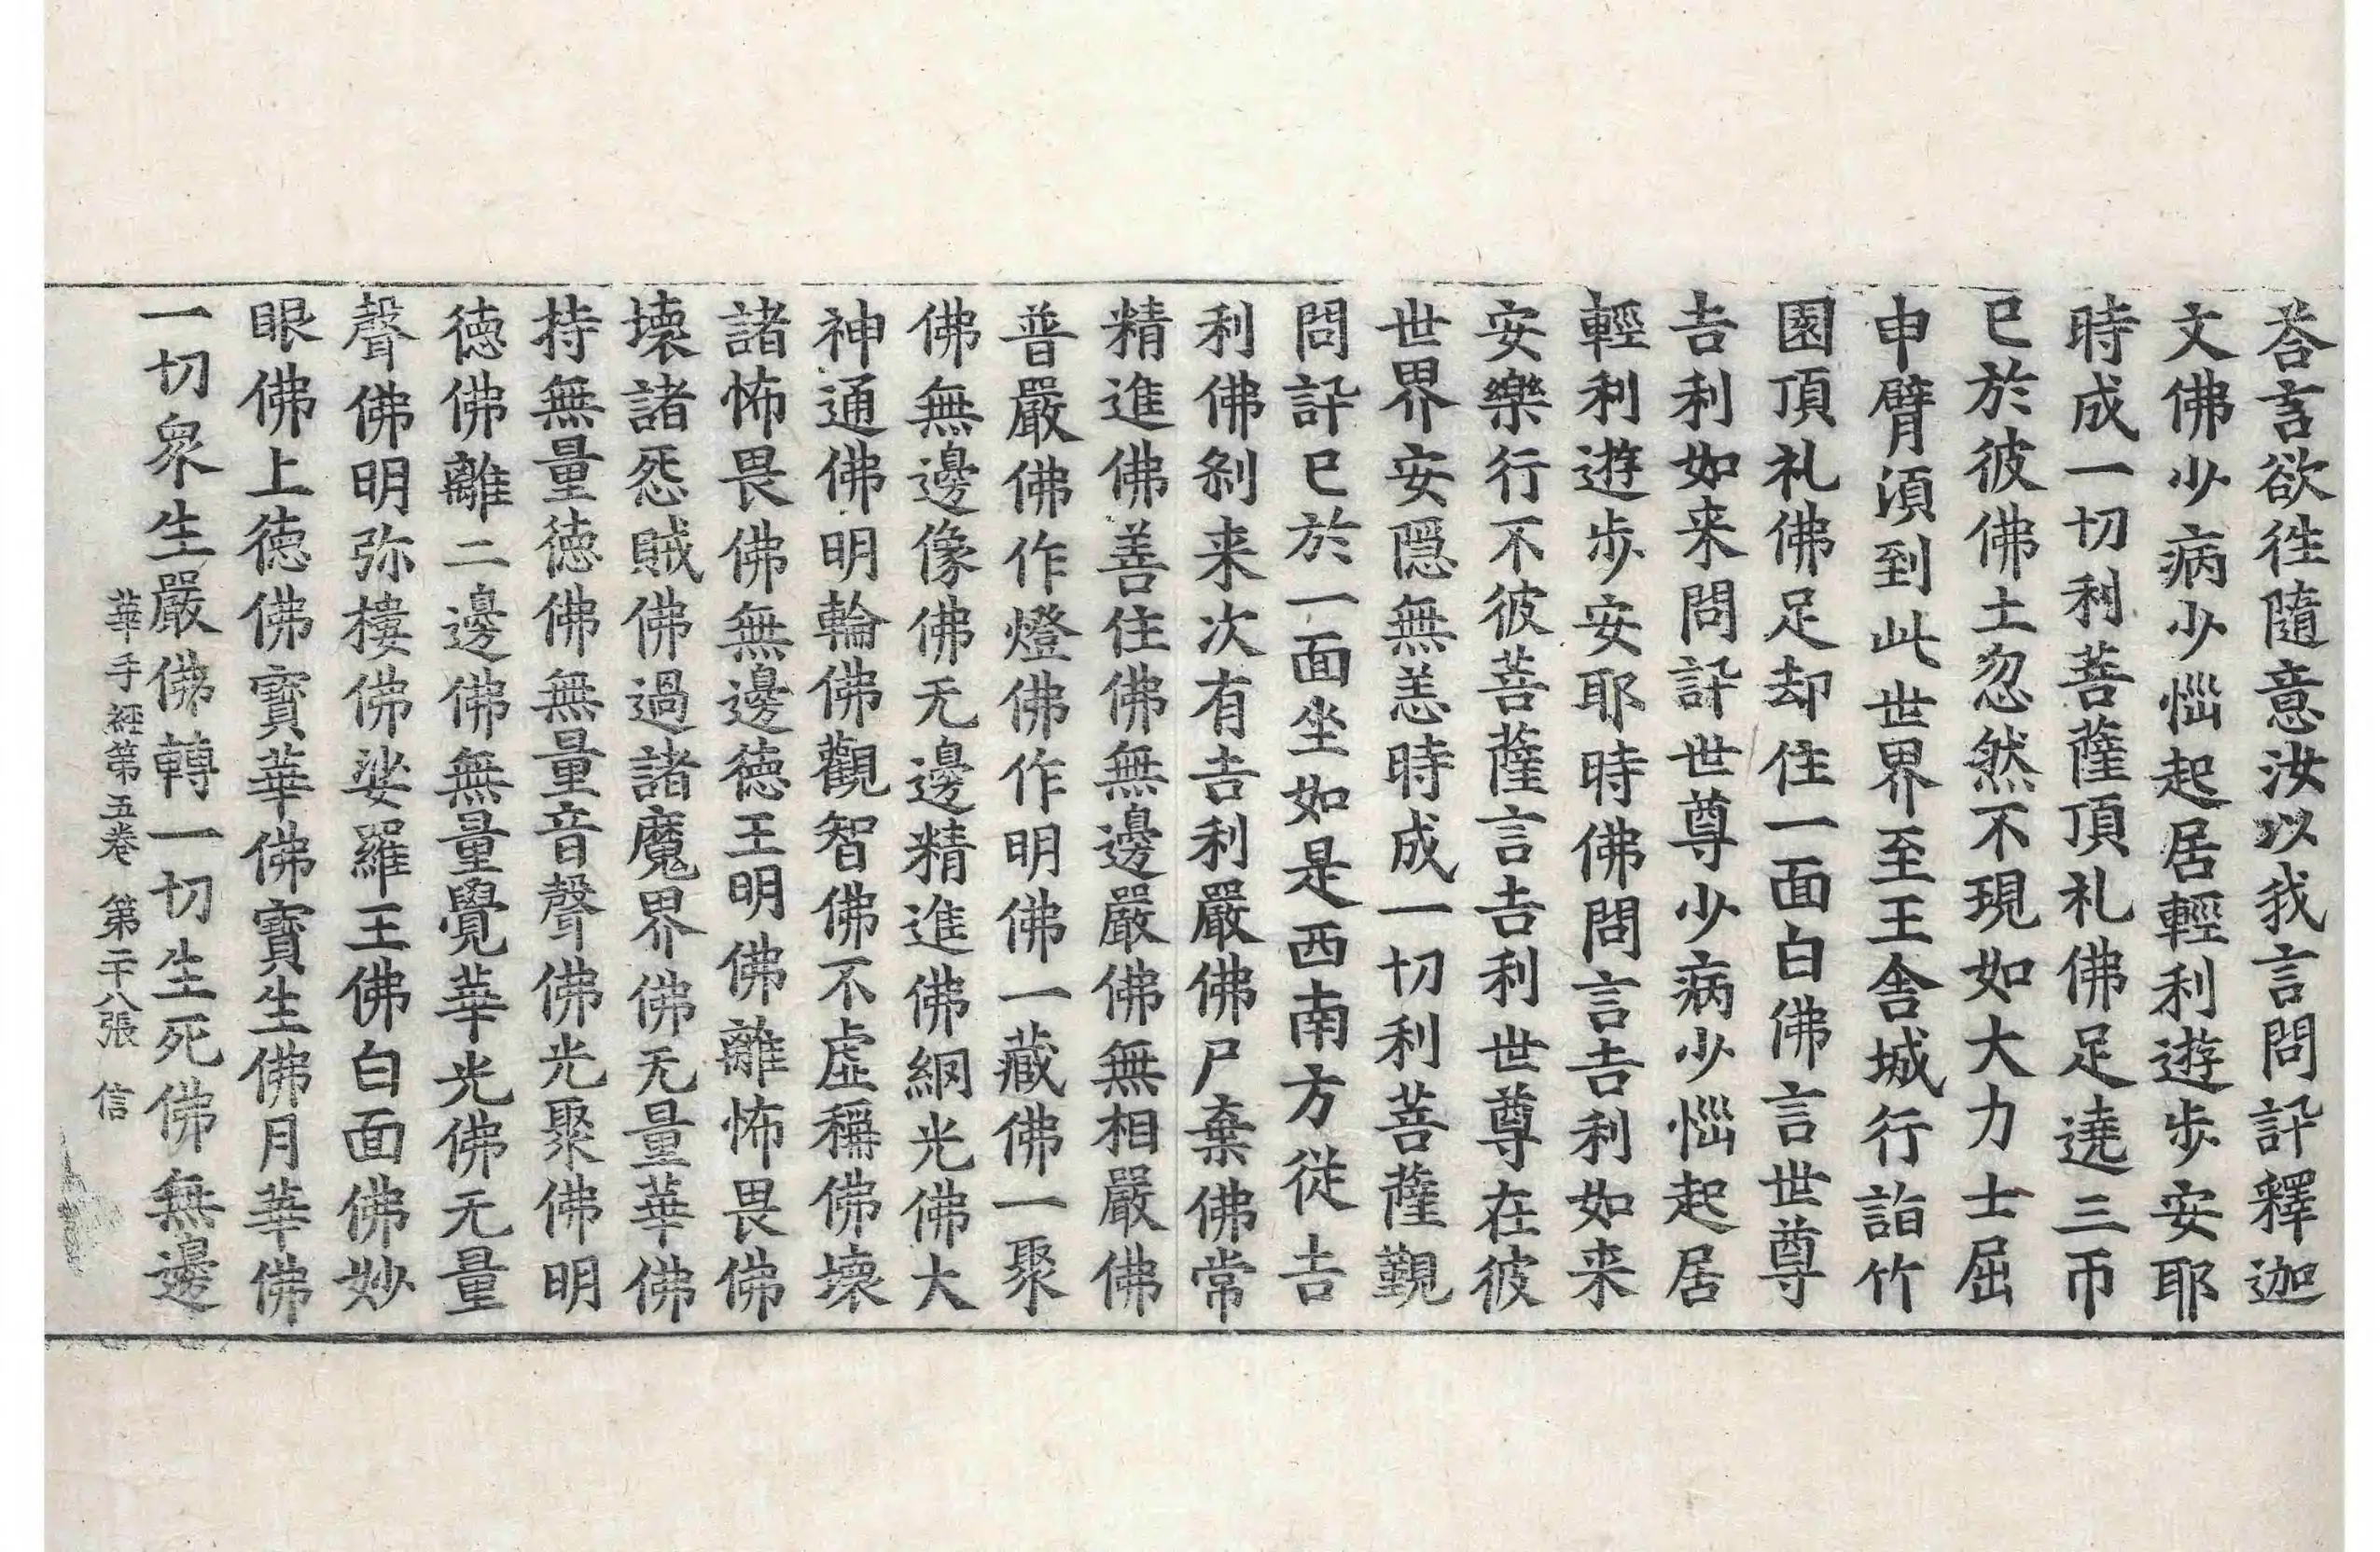 荅言欲徃隨意汝以我言問訊釋迦
文佛少病少惱起居輕利遊步安耶
時成一切利菩薩頂礼佛足遶三帀
已於彼佛土忽然不現如大力士屈
申臂湏到此世界至王舍城行詣竹
園頂礼佛足却住一面白佛言世尊
吉利如来問訊世尊少病少惱起居
輕利遊步安耶時佛問言吉利如来
安樂行不彼菩薩言吉利世尊在彼
世界安隱無恙時成一切利菩薩覲
問訊已於一面坐如是西南方從吉
利佛刹来次有吉利嚴佛尸棄佛常
精進佛善住佛無邊嚴佛無相嚴佛
普嚴佛作燈佛作明佛一藏佛一聚
佛無邊像佛无邊精進佛網光佛大
神通佛明輪佛觀智佛不虛稱佛壞
諸怖畏佛無邊德王明佛離怖畏佛
壞諸怨賊佛過諸魔界佛无量華佛
持無量德佛無量音聲佛光聚佛明
德佛離二邊佛無量覺華光佛无量
聲佛明弥樓佛娑羅王佛白面佛妙
眼佛上德佛寳華佛寳生佛月華佛
一切衆生嚴佛轉一切生死佛無邊
華手經第五卷 第二十八張 信